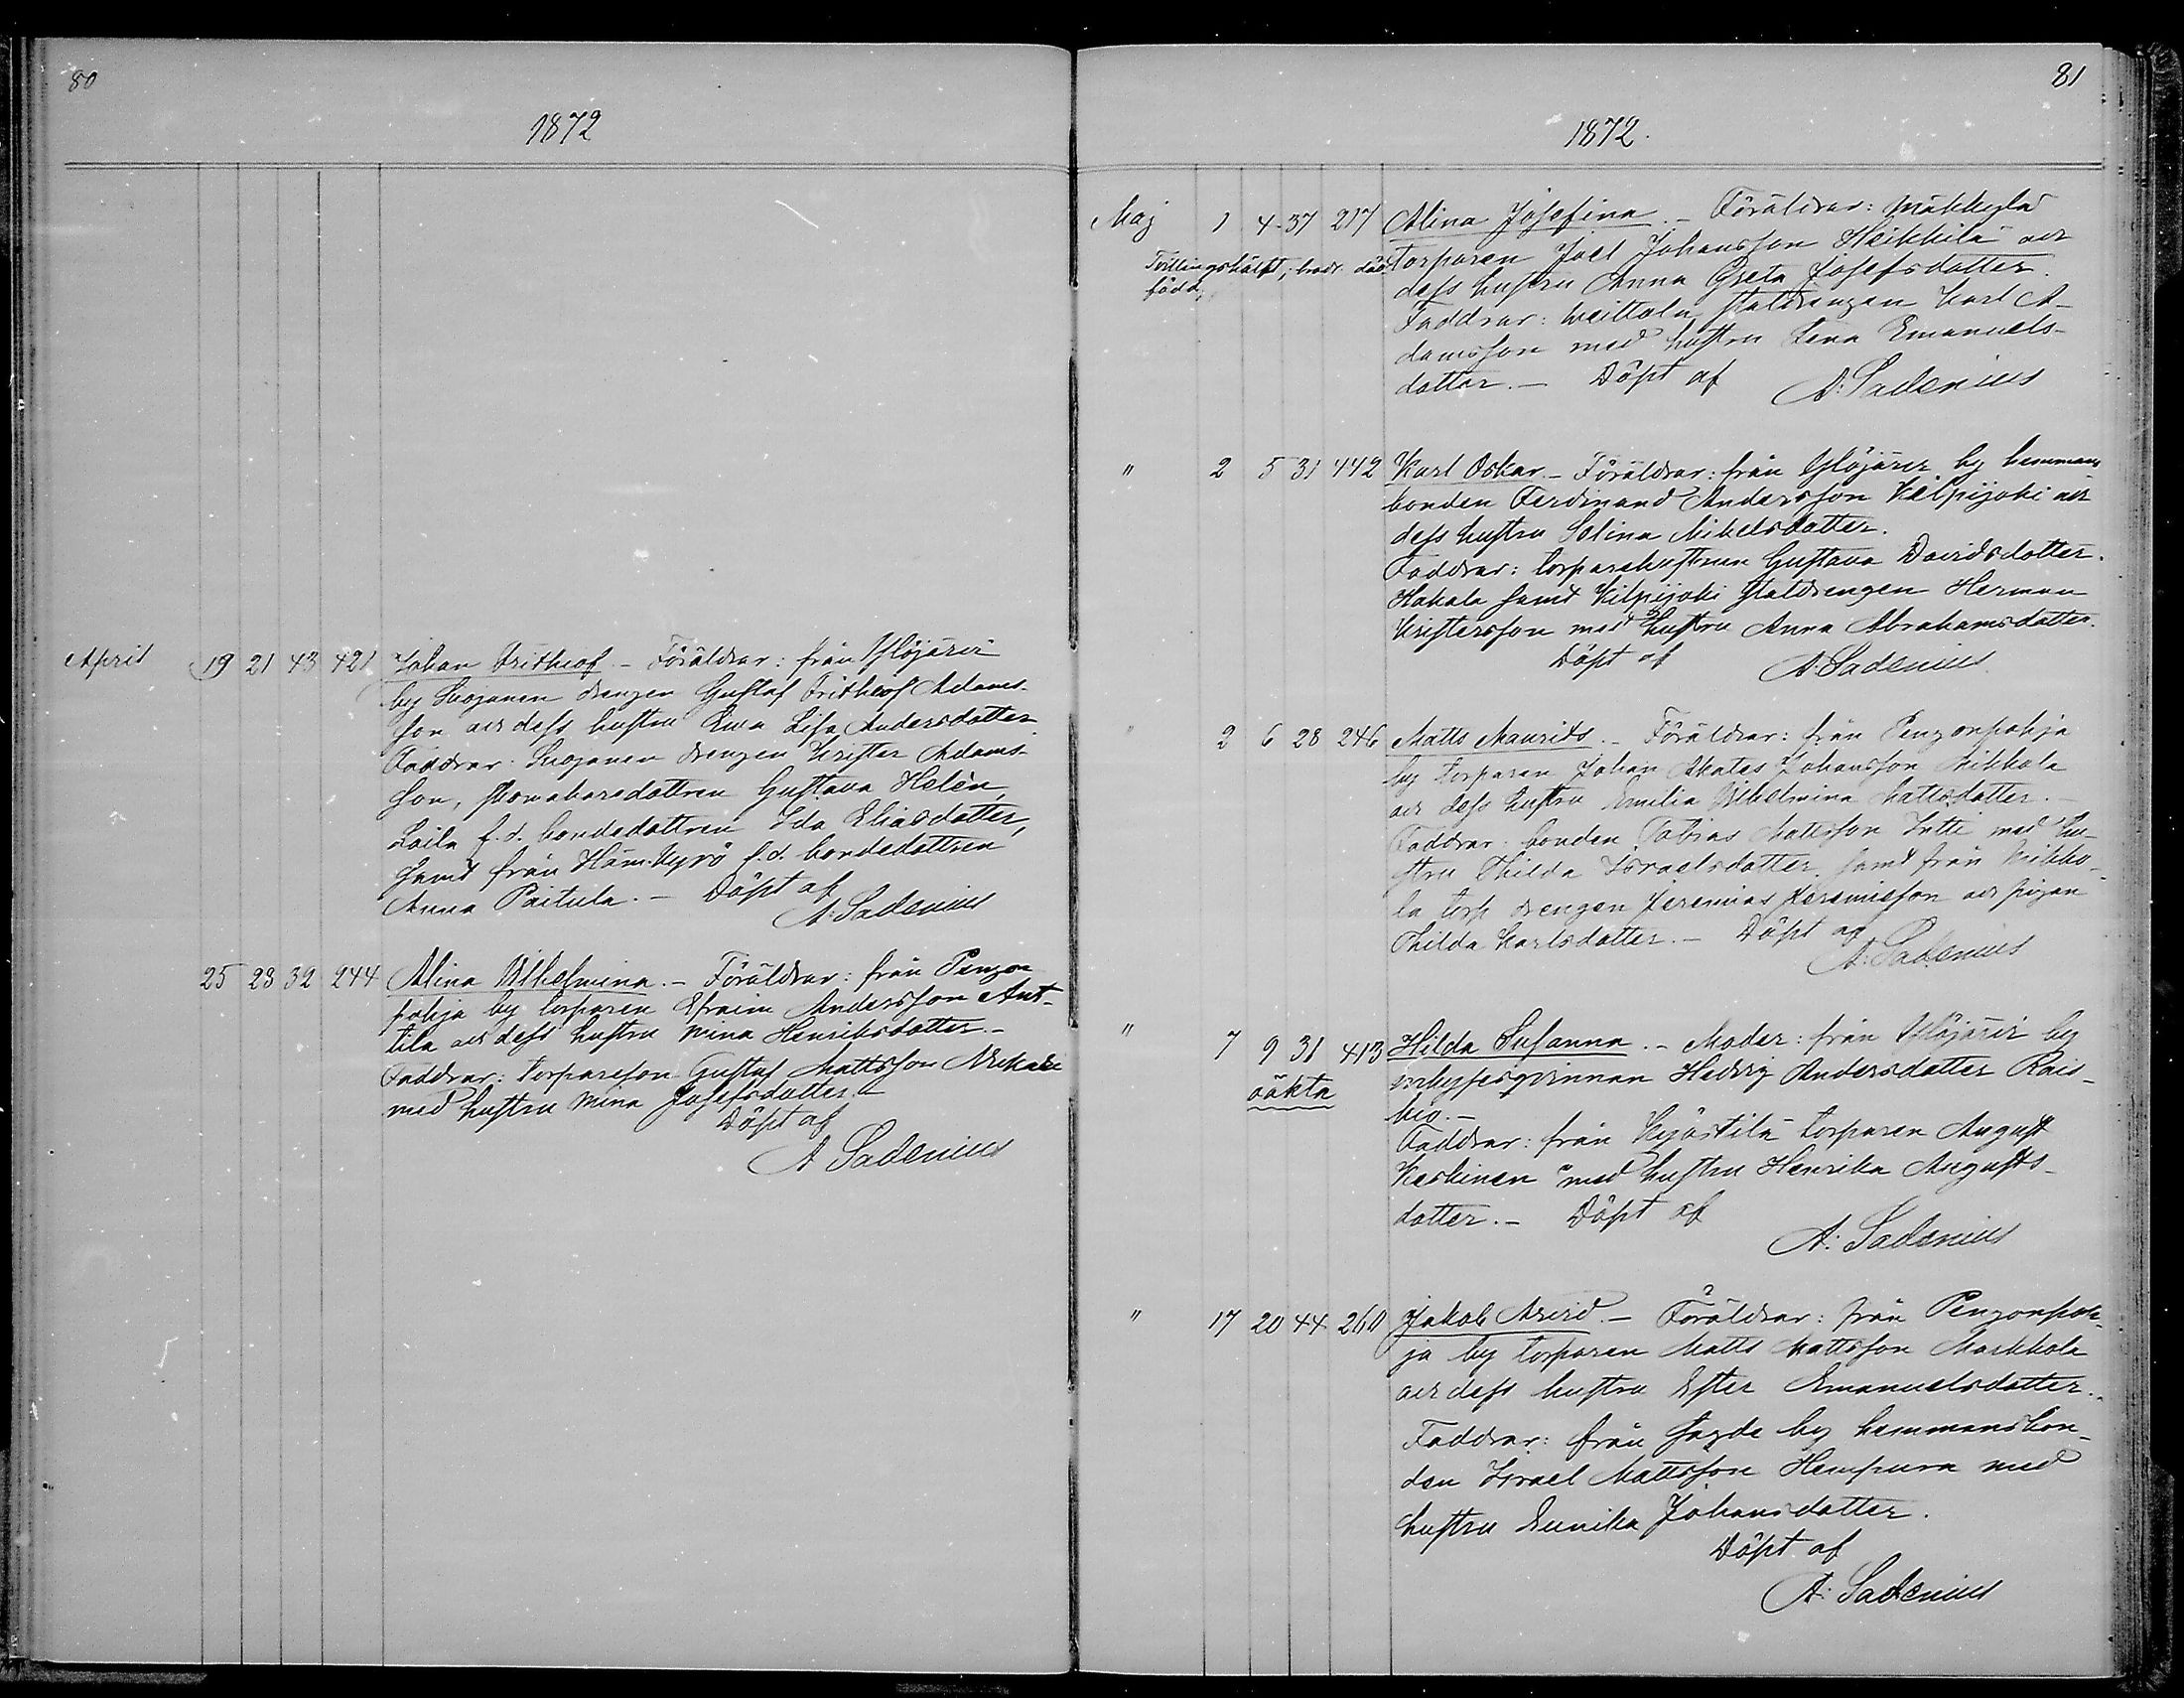 80
1872
April 19 21 43 421 Johan Fridheof. - Föräldrar: från Ylöjärvi
by drengen Gustaf Fridheof Adams-
son och dess hustru Eva Lisa Andersdotter
Faddrar: drengen Krister Adams-
son, Gustava Helén,
Laila f.d. bondedottren Ida Eliasdotter,
samt från Ham. Kyrö f.d. bondedottren
Anna Paitula. - Döpt af
A: Sadenius
25 28 32 244 Alina Vilhelmina. - Föräldrar: från Penzon
pohja by torparen Efraim Andersson Ant-
tila och dess hustru Mina Henriksdotter. -
Faddrar: torpareson Gustaf Mattsson
med hustru Mina Josefsdotter. -
Döpt af
A Sadenius
81
1872.
Maj 1 4 37 217 Alina Josefina. - Föräldrar: Mäkkylä
torparen Joel Johansson Heikkilä och
Tvillingshälft, dess hustru Anna Greta Josefsdotter.
född; Faddrar: Karl A-
damsson med hustru Lena Emanuels-
dotter. - Döpt af A: Sadenius
" 2 5 31 442 Karl Oskar. - Föräldrar: från Ylöjärvi by hemmans
bonden Ferdinand Andersson Kilpijoki och
dess hustru Selina Mikelsdotter.
Faddrar: torparehustrun Gustava Davidsdotter.
Hakala samt Kilpijoki staldrengen Herman
Kristersson med hustru Anna Abrahamsdotter.
Döpt af A. Sadenius.
" 2 6 28 246 Matts Maurits. - Föräldrar: från Penzonpohja
by torparen Johan Akates Johansson Mikkola
och dess hustru Emilia Vilhelmina Mattsdotter. -
Faddrar: bonden Tobias Mattsson Intti med hu-
stru Thilda Israelsdotter, samt från Mikko-
la torp drengen Jeremias Jeremiesson och pigan
Thilda Karlsdotter. - Döpt af
A: Sadenius
" 7 9 31 413 Hilda Susanna. - Moder: från Ylöjärvi by
oäkta inhysesqvinnan Hedvig Andersdotter Rais-
kio. -
Faddrar: från Kyöstilä torparen August
Keskinen med hustru Henrika Augusts-
dotter. - Döpt af
A: Sadenius
" 17 20 44 260 Jakob Arvid. - Föräldrar: från Penzonpoh-
ja by torparen Matts Mattsson Markkola
och dess hustru Ester Emanuelsdotter.
Faddrar: från by hemmansbon-
den Israel Mattsson Hempura med
hustru Eunika Johansdotter.
Döpt af
A: Sadenius